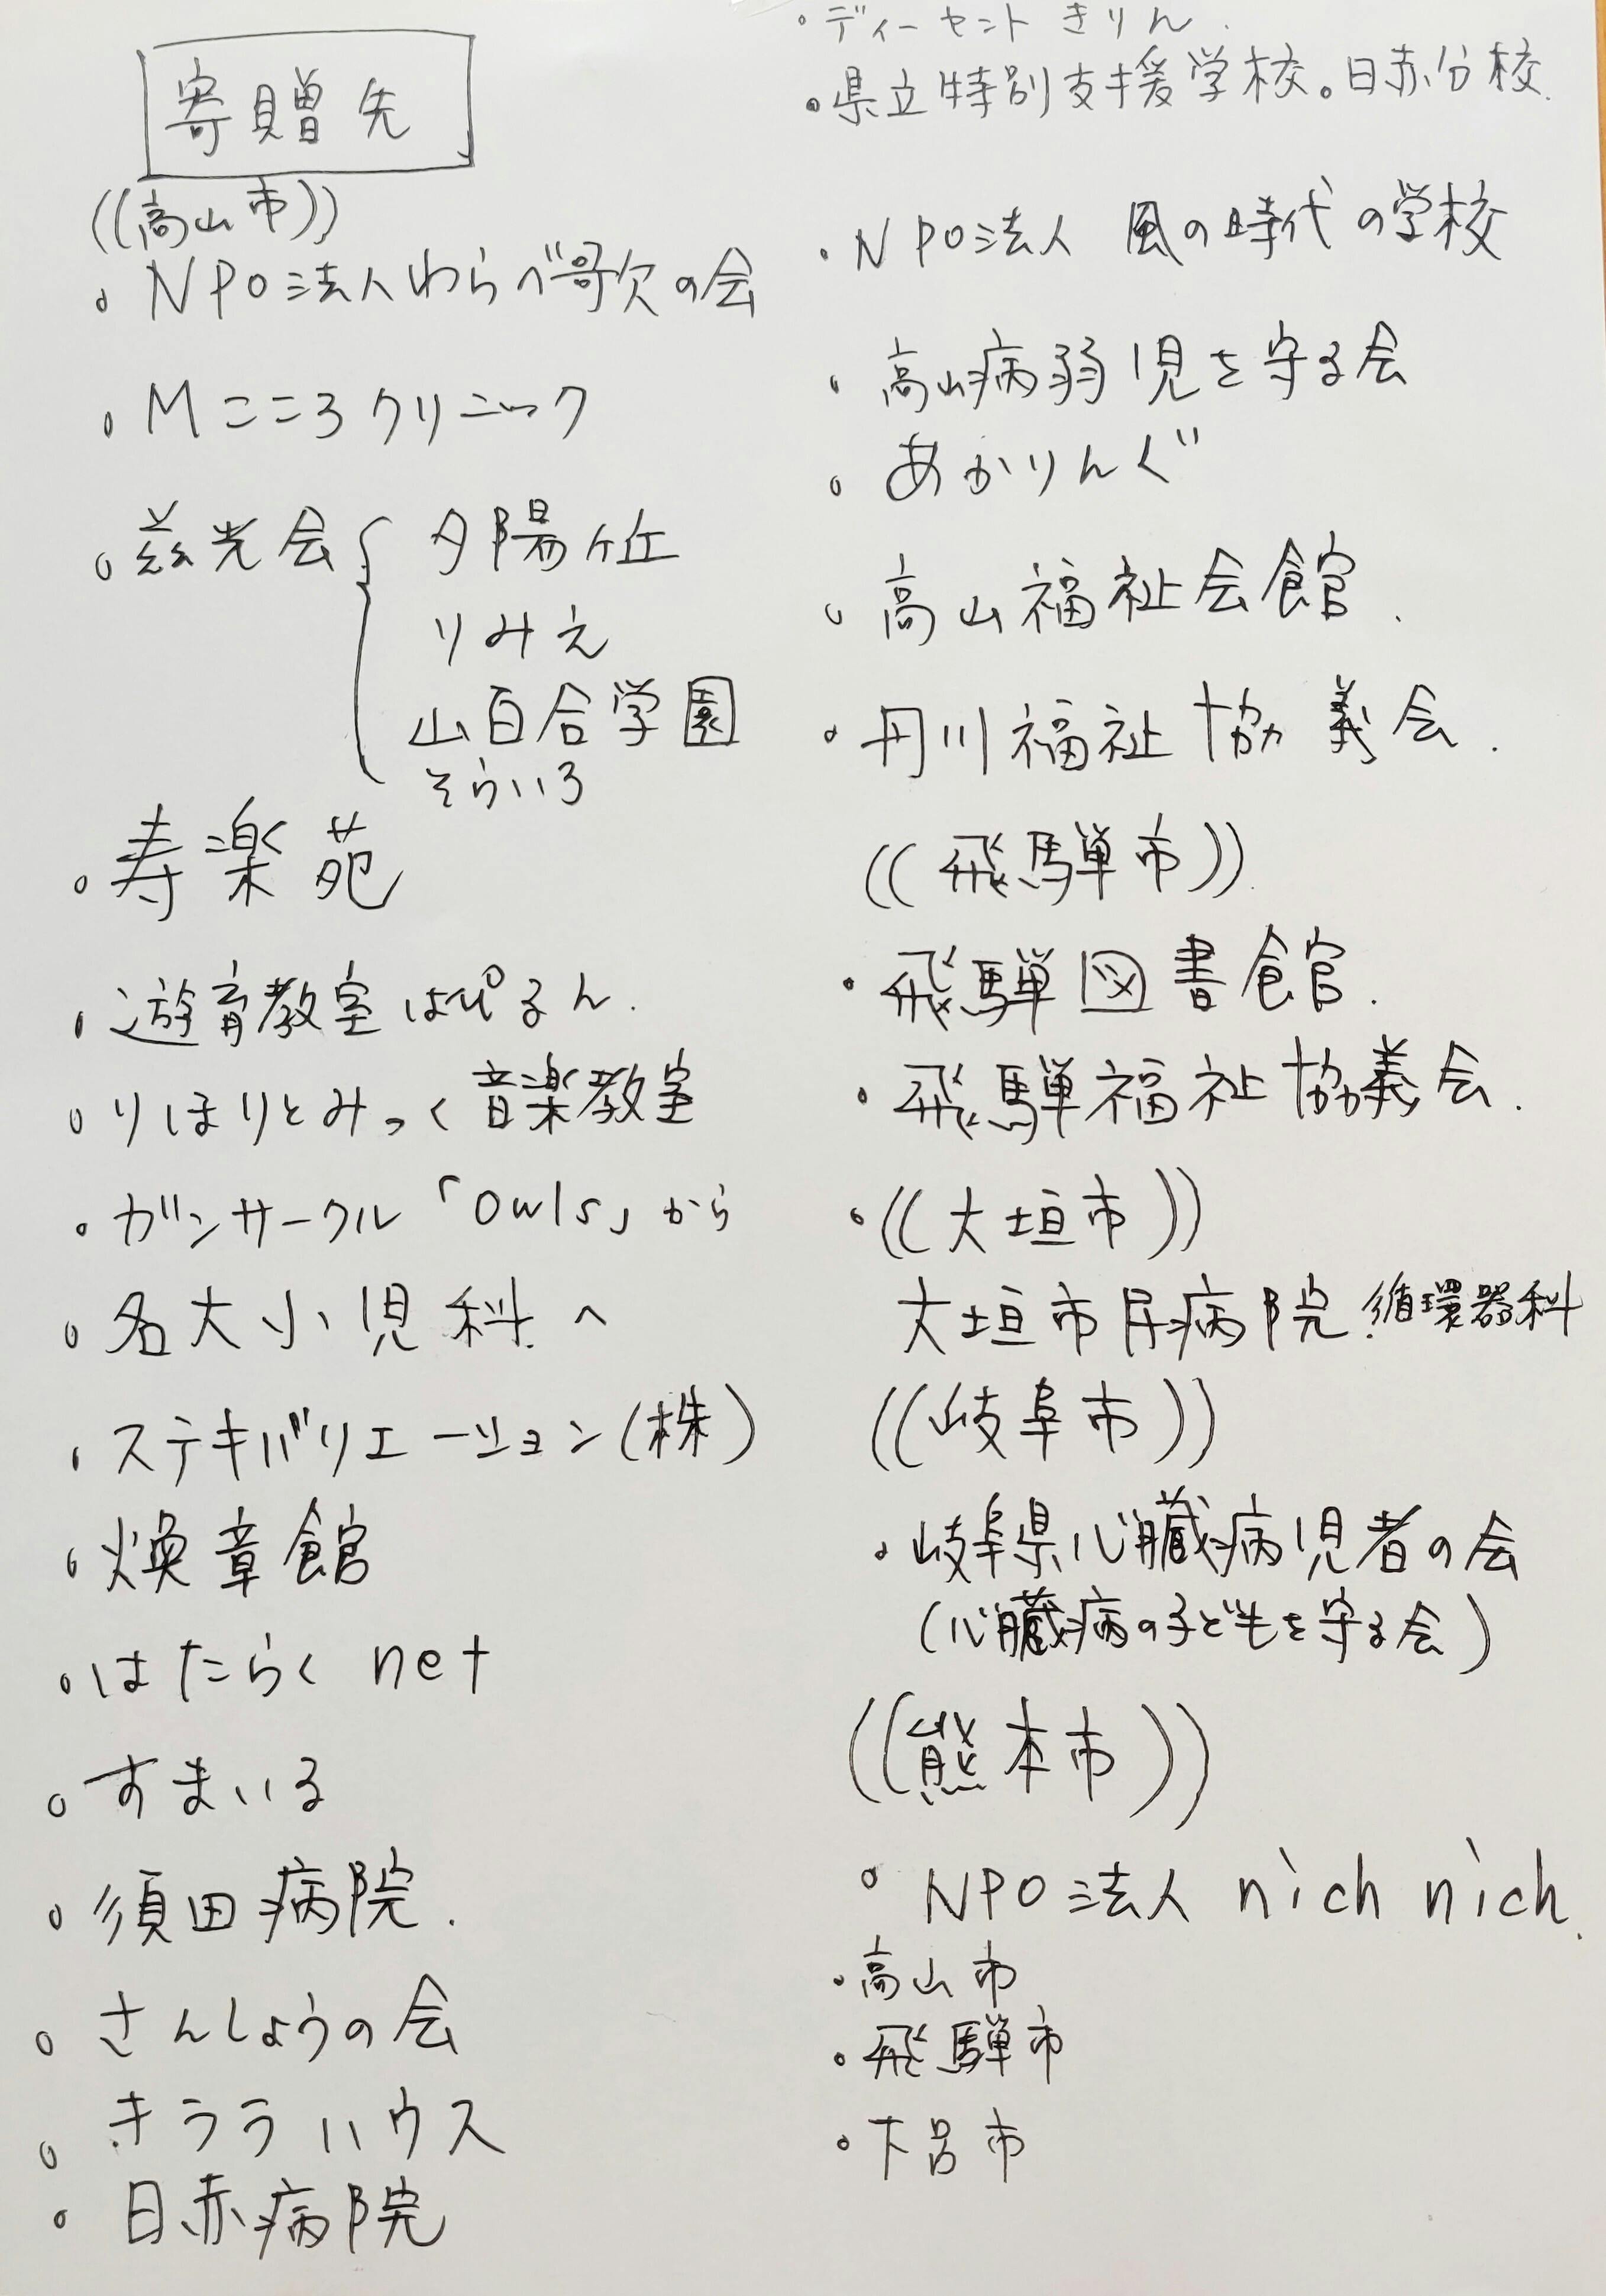 寄贈先
((高山市))
。NPO法人わらべ歌の会
。Mこころクリニック
。慈光会{ 夕陽ヶ丘
りみえ
山百合学園
そらいろ
。寿楽苑
。遊育教室はぴるん.
。りほりとみっく音楽教室
。ガンサークル「Owls」から
。名大小児科へ
。ステキバリエーション(株)
。煥章館
。はたらくnet
。すまいる
。須田病院.
。さんしょうの会
。キララハウス
。日赤病院
。ディーセントきりん.
。県立特別支援学校。日赤分校.
・NPO法人 風の時代の学校
。高山病弱児を守る会
。あかりんぐ
。高山福祉会館.
・丹川福祉協義会.
((飛騨市))
・飛騨図書館.
・飛騨福祉協義会.
・((大垣市))
大垣市民病院.循環器科
((岐阜市))
・岐阜県心臓病児者の会
(心臓病の子どもを守る会)
((熊本市))
。NPO法人 nich nich.
・高山市
・飛騨市
・下呂市